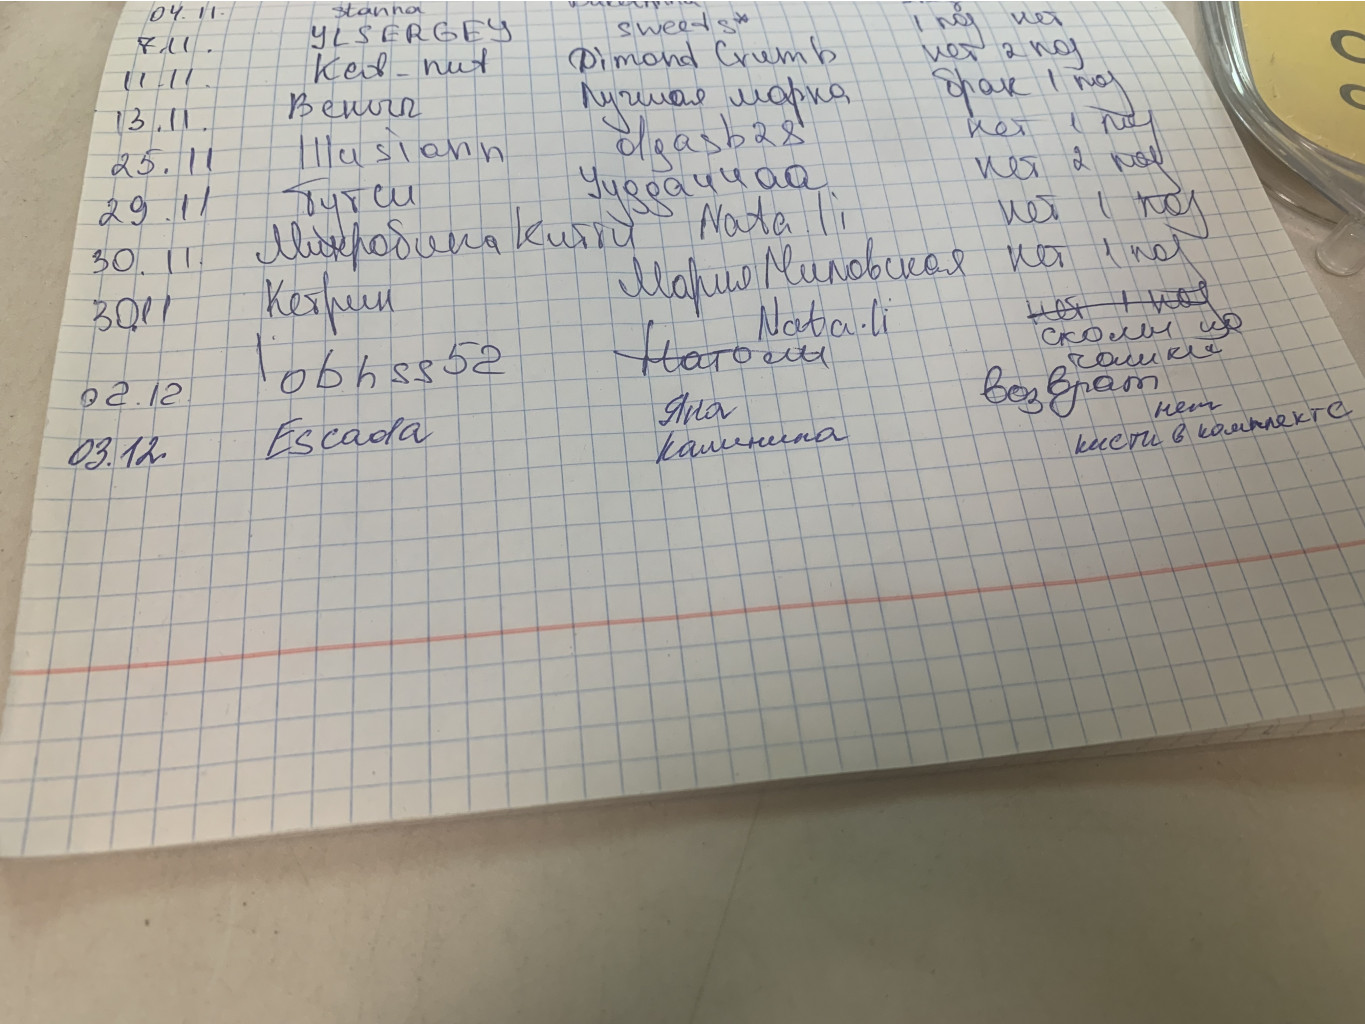 04.11. stanna
7.11. YLSERGEY sweets* 1 поз нет
11.11. Kest-nut Dimond Crumb нет 2 поз
13.11. Венил Лучшая марка брак 1 поз
25.11 Illusiann olgasb28 нет 1 поз
29.11 Бутси Ууддаччаа нет 2 поз
30.11. Микробина Китти Nata.li. нет 1 поз
30.11 Кетрин Мария Миловская нет 1 поз
нет 1 поз
02.12 bhss52 Nata.li сколы по
чашке
возврат
03.12. Escada Яна нет
Калинина кисти в комплекте